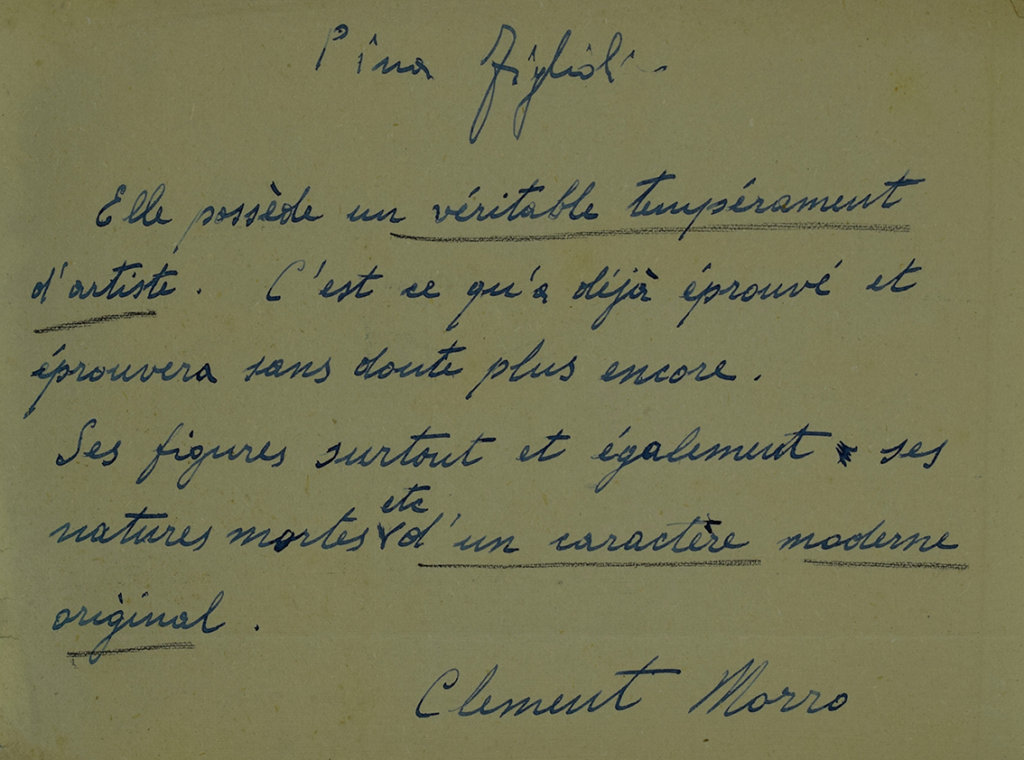 Pina Figlioli -
Elle possède un véritable tempérament
d'artiste. C'est ce qu'a déjà éprouvé et
éprouvera sans doute plus encore.
Ses figures surtout et également ses
natures mortes etc d'un caractère moderne
original.
Clement Morro